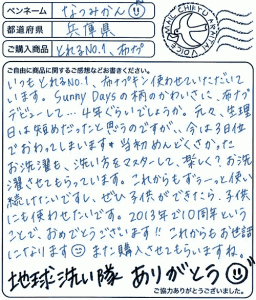 ペンネーム なつみかん
都道府県 兵庫県
ご購入商品 とれるNO.1、布ナプ
CHIKYU ARAITAI VOICE MAIL
ご自由に商品に関するご感想などお書きください。
いつもとれるNO.1、布ナプキン使わせていただいて
います。Sunny Daysの柄のかわいさに、布ナプ
デビューして…4年ぐらいでしょうか。元々、生理
日は短めだったと思うのですが、、今は3日位
でおわってしまいます。当初めんどくさがった
お洗濯も、洗い方をマスターして、楽しく？お洗
濯させてもらっています。これからもずぅーっと使い
続けたいですし、ぜひ子供ができたら、子供
にも使わせたいです。2013年で10周年という
ことで、おめでとうございます!! これからもお世話
になります また購入させてもらいますね。
地球洗い隊 ありがとう
ご協力ありがとうございました。